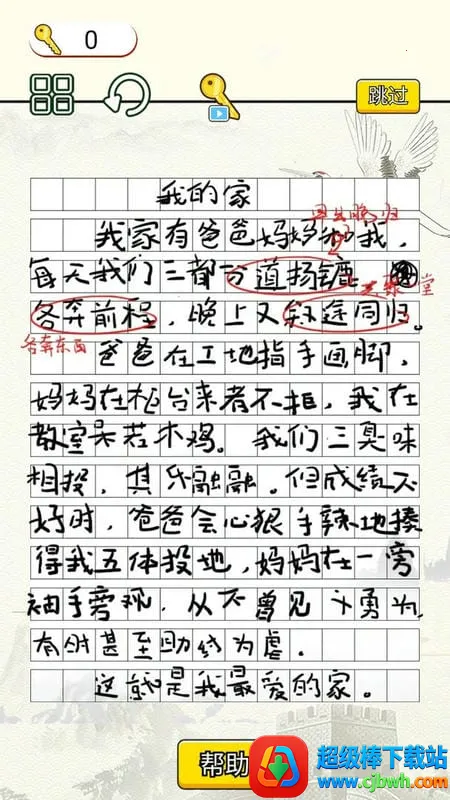 0
跳过
我的家
早出晚归
我家有爸爸妈妈和我,
每天我们三都分道扬镳,
堂
各奔前程,晚上又殊途同归。
各奔东西
爸爸在工地指手画脚,
妈妈在柜台来者不拒,我在
教室呆若木鸡。我们三臭味
相投,其乐融融。但成绩不
好时,爸爸会心狠手辣地揍
得我五体投地,妈妈在一旁
袖手旁观,从不曾见 勇为,
有时甚至助纣为虐。
这就是我最爱的家。
帮助
超级棒下载站
www.cjbwh.com